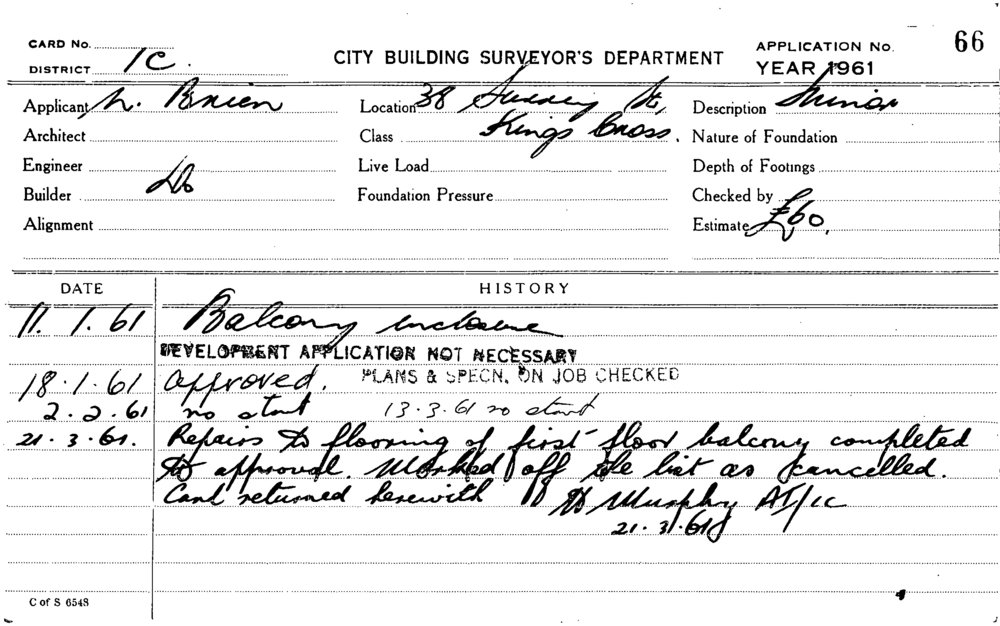 CARD No.
DISTRICT 1C.
CITY BUILDING SURVEYOR'S DEPARTMENT
APPLICATION No. 66
YEAR 1961
Applicant N. Brien
Location 38 Surrey St,
Description Minor
Architect
Class Kings Cross.
Nature of Foundation
Engineer
Live Load
Depth of Footings
Builder Do
Foundation Pressure
Checked by
Alignment
Estimate £60.
DATE HISTORY
11. 1. 61 Balcony enclosure
DEVELOPMENT APPLICATION NOT NECESSARY
18.1.61 Approved. PLANS & SPECN. ON JOB CHECKED
2.2.61 no start 13.3.61 no start
21.3.61. Repairs to flooring of first floor balcony completed
to approval. Marked off the list as cancelled.
Card returned herewith Murphy AI/1C
21.3.61
C of S 6548